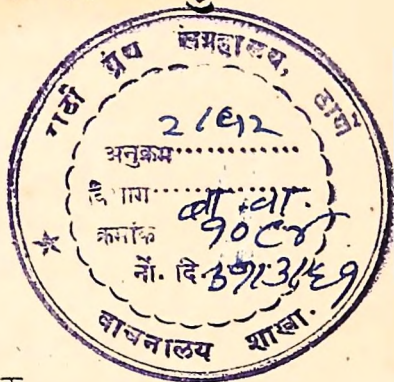 मराठी ग्रंथ संग्रहालय, ठाणें
अनुक्रम
विभाग बा. वा.
क्रमांक १०८४
नों. दि ३१/३/६१
वाचनालय शाखा.